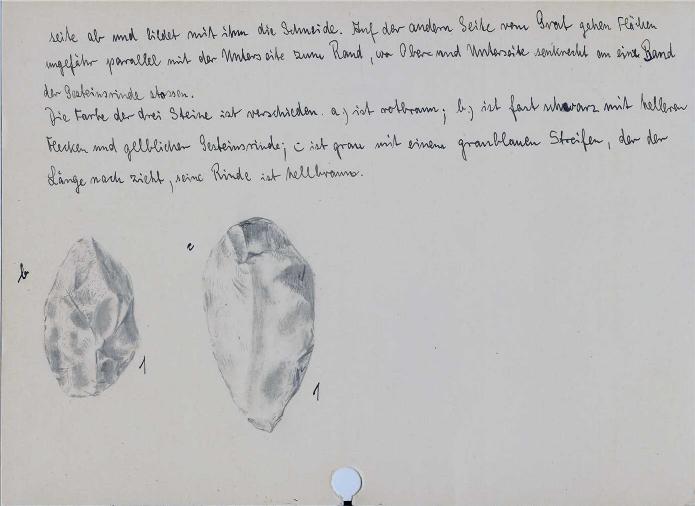 seite ab und bildet mit ihm die Schneide. Auf der andern Seite vom Grat gehen Flächen
ungefähr parallel mit der Unterseite zum Rand, wo Ober- und Unterseite senkrecht an ein Band
der Gesteinsrinde stossen.
Die Farbe der drei Steine ist verschieden. a) ist rotbraun; b) ist fast schwarz mit helleren
Flecken und gelblicher Gesteinsrinde; c ist grau mit einem graublauen Streifen, der der
Länge nach zieht, seine Rinde ist hellbraun.
b
c
1
1